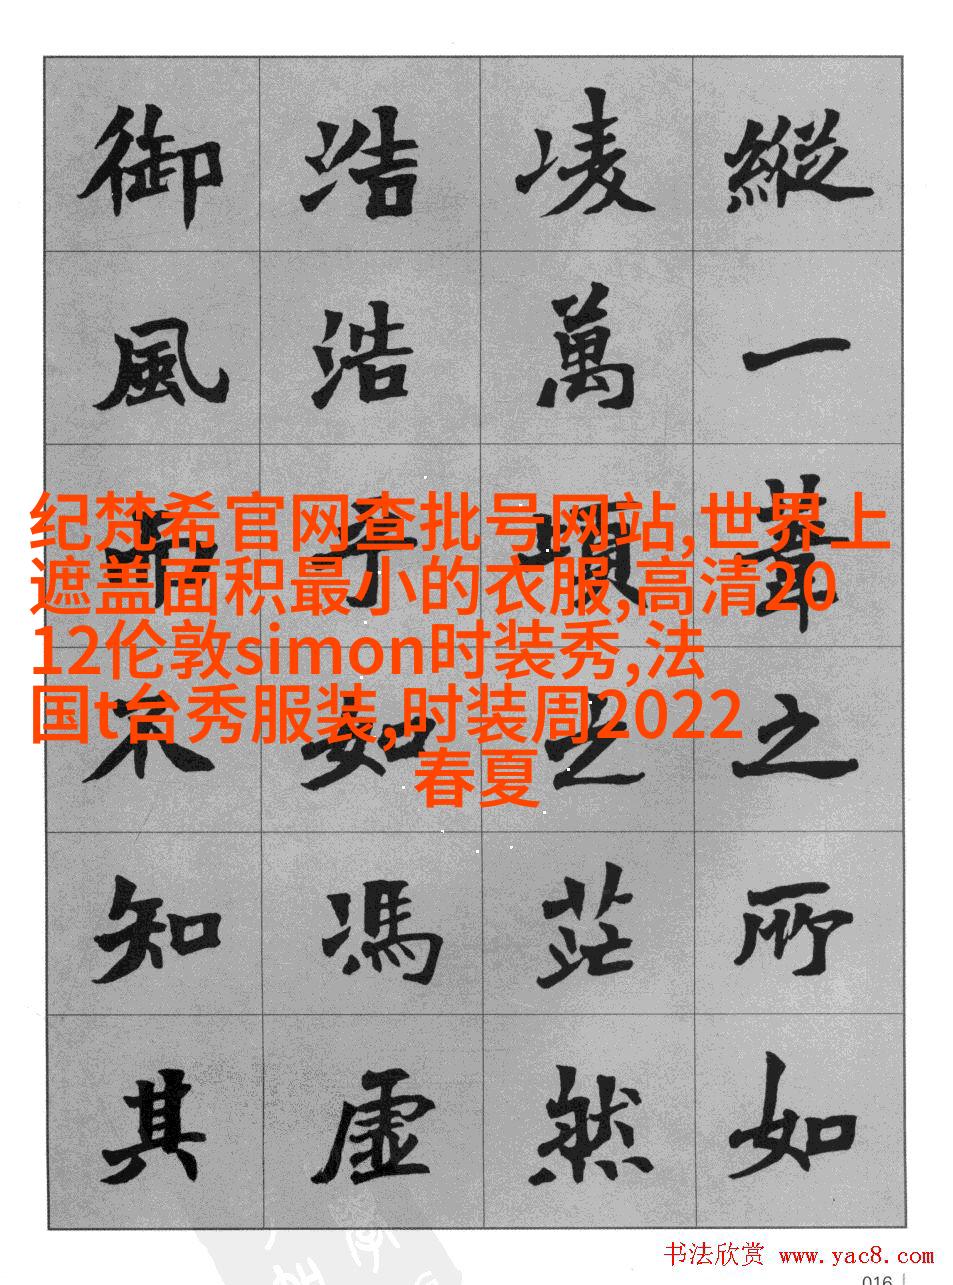 縱一葦之所如
凌萬頃之茫然
浩浩乎如馮虛
御風而不知其
纪梵希官网查批号网站,世界上
遮盖面积最小的衣服,高清20
12伦敦simon时装秀,法
国t台秀服装,时装周2022
春夏
书法欣赏 www.yac8.com
016